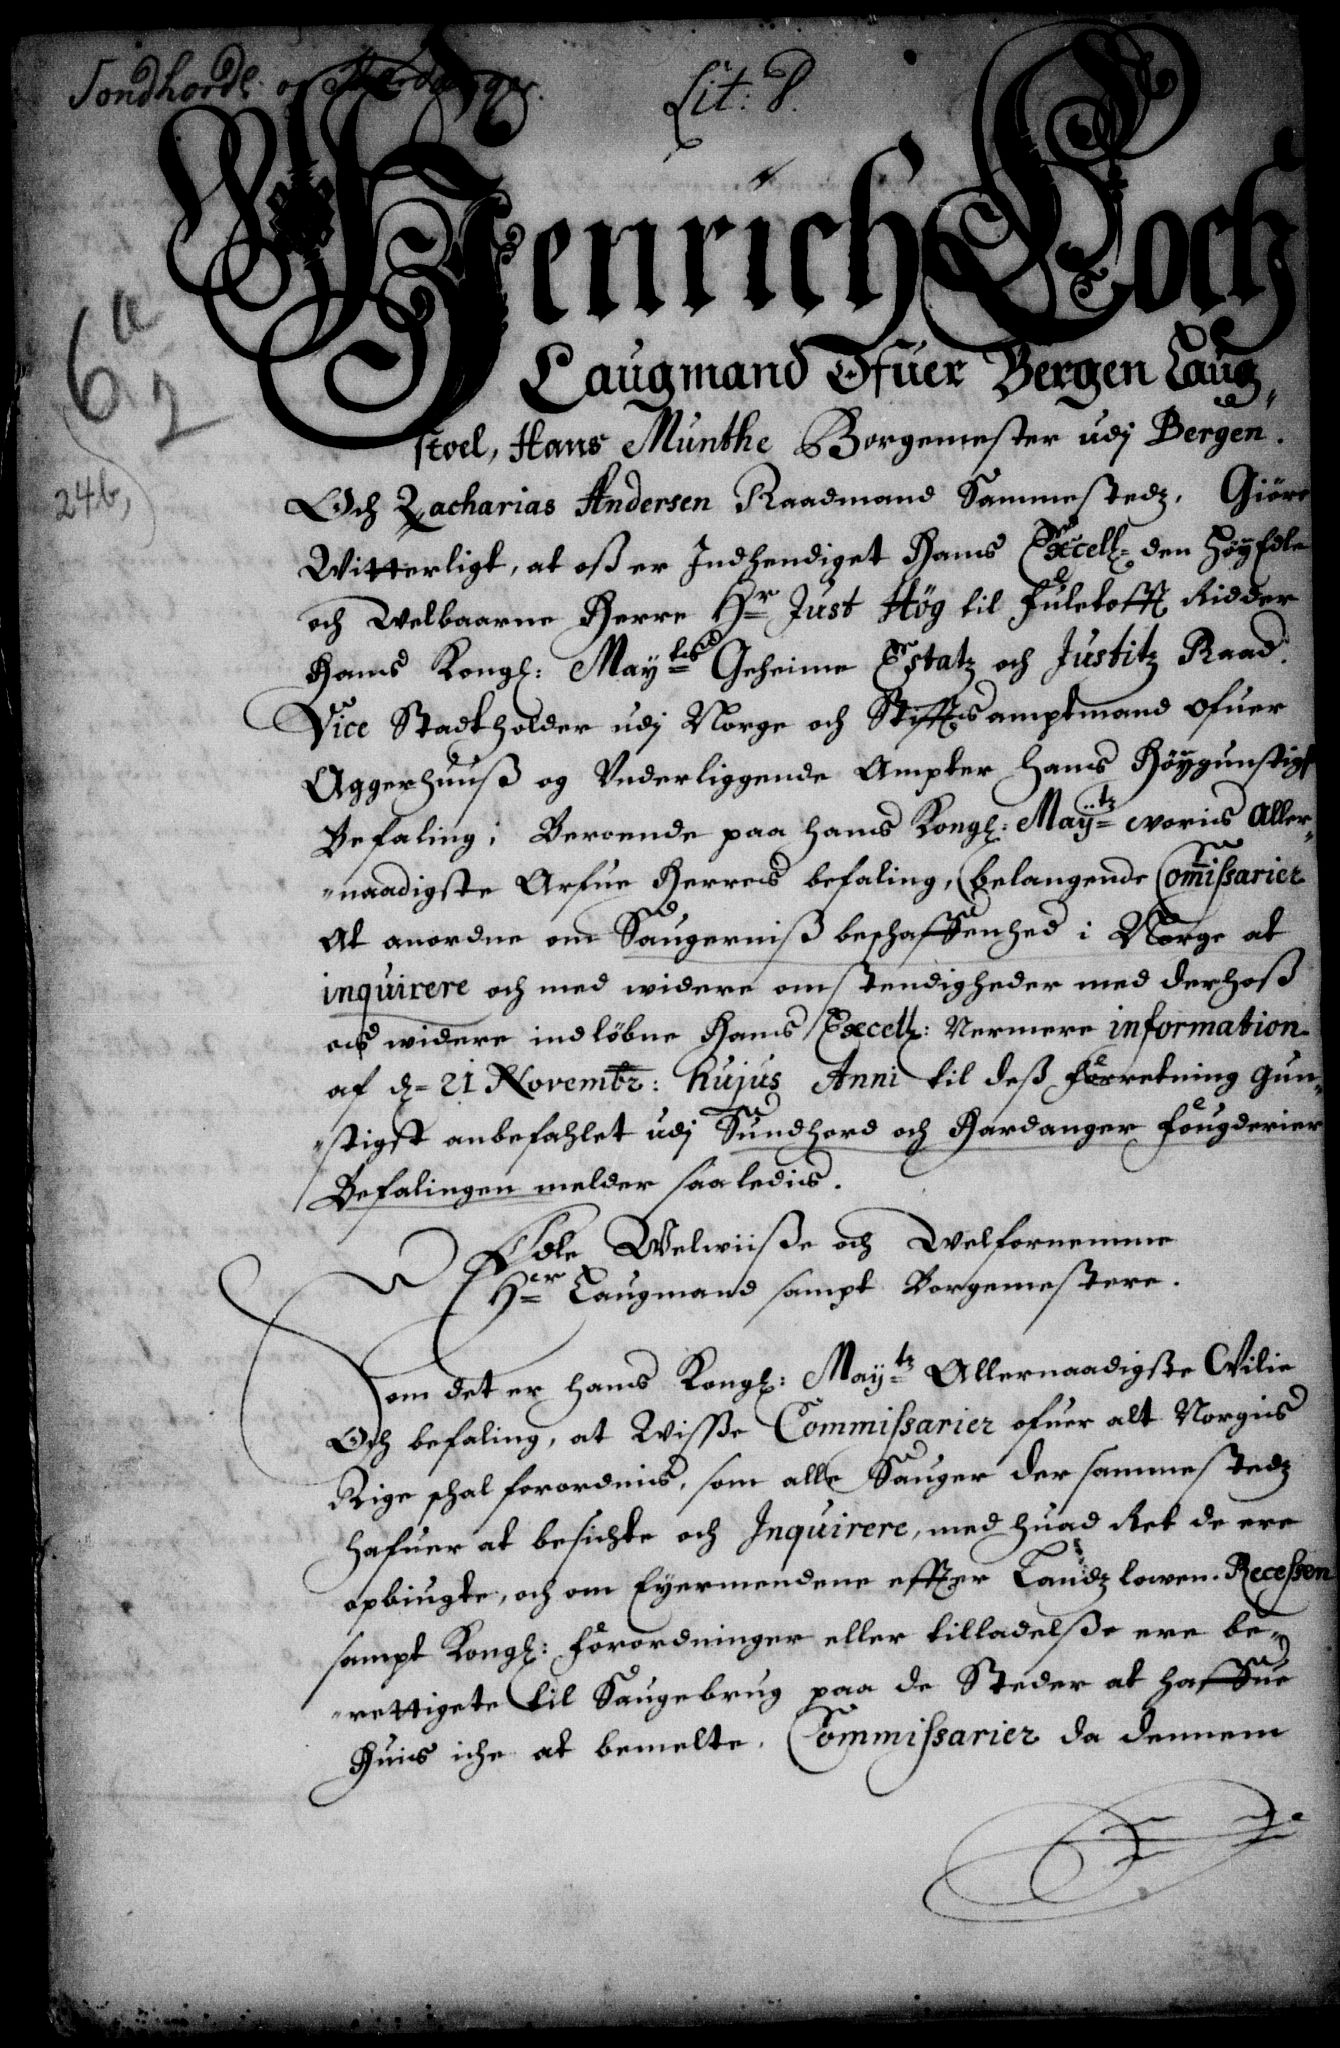 Sondhordl: og Hardanger.
Lit: P.
6 a
2
246,
Henrich Coch
Laugmand Ofuer Bergen Laug„
stoel, Hans Munthe Borgemester udj Bergen.
Och Zacharias Andersen Raadmand Sammestedz, Giöre
Witterligt, at oß er Indhendiget Hans Excell= den Höyedle
och Welbaarne Herre Hr Just Hög til Fuletofft Ridder
Hans Kongl: Maytes Geheime Estatz och Justitz Raad.
Vice Stadtholder udj Norge och Stifftsamptmand ofuer
Aggerhuuß og Underliggende Ampter hans Höygunstigst
Befaling; Beroende paa hans Kongl: Maÿtz woris Aller„
„naadigste Arfue Herres befaling, belangende Com̅issarier
At anordne om Saugerniß beschaffenhed i Norge at
inquirere och med widere omstendigheder med derhoß
os widere indlöbne Hans Excell: Nermere information
af d= 21 Novembr: hujus Anni til deß forretning gun„
„stigst anbefahlet udj Sundhord och Hardanger fougderier
Befalingen melder saaledis.
Edle Welwiiße och Welfornemme
Her Laugmand sampt Borgemestere.
Som det er hans Kongl: Maytz Allernaadigste Wilie
Och befaling, at Wisse Commissarier ofuer alt Norgis
Rige schal forordnis, som alle Sauger der sammestedz
hafuer at besichte och Inquirere, med huad Ret de ere
opbiugte, och om Eyermendene effter Landz lowen. Recessen
sampt Kongl: forordninger eller tilladelße ere be„
„rettigete til Saugebrug paa de Steder at haffue
Huis iche at bemelte. Commissarier da dennem